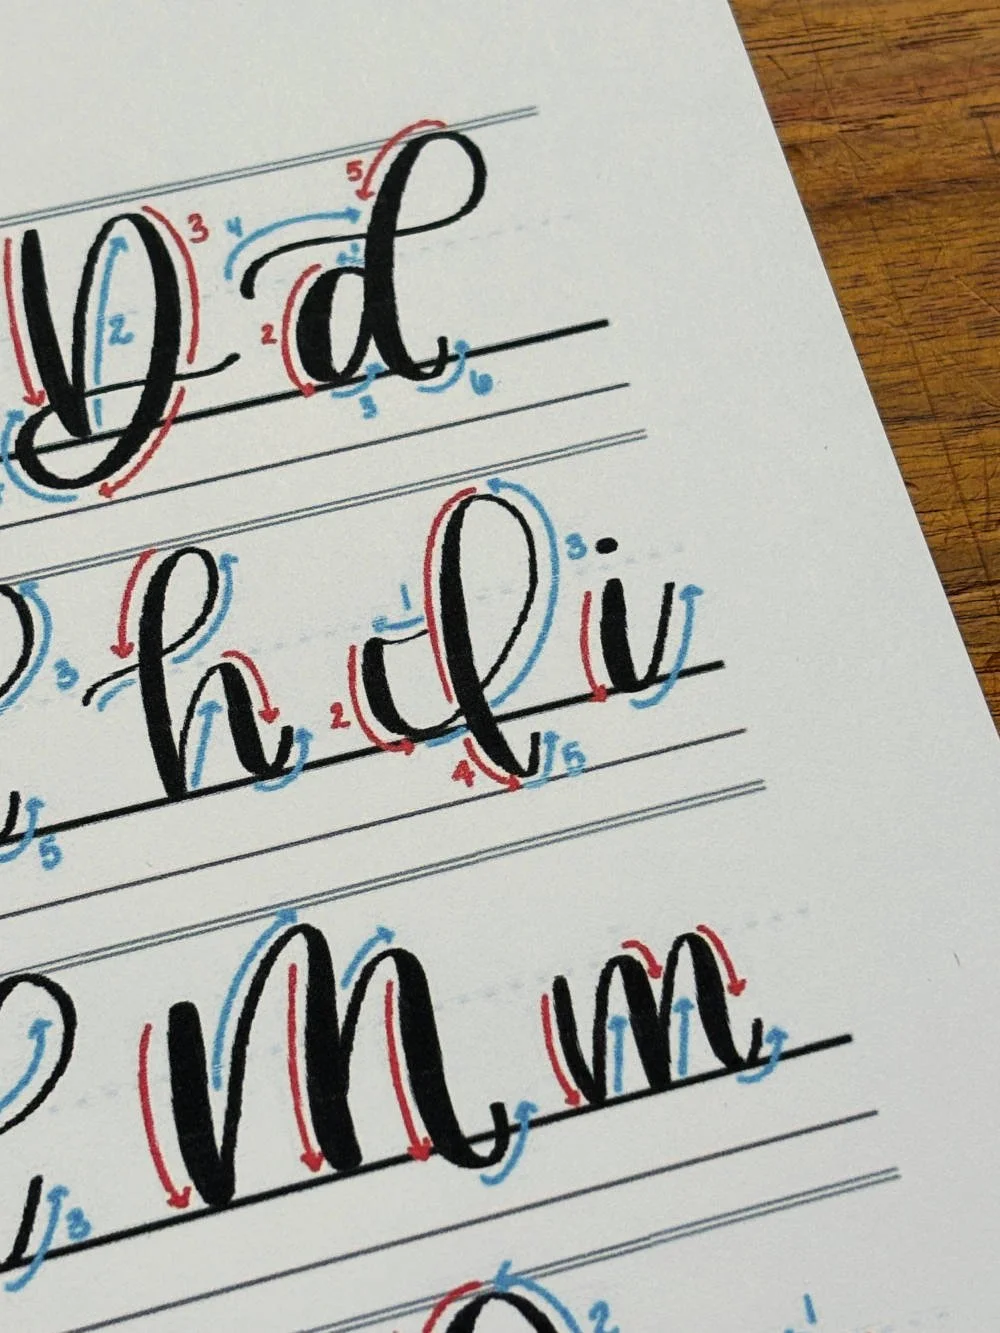 3 5 4
D d
2 1 2 3 6
3 1 3
h I i
3 2 4 5 5
M m
3
2 1